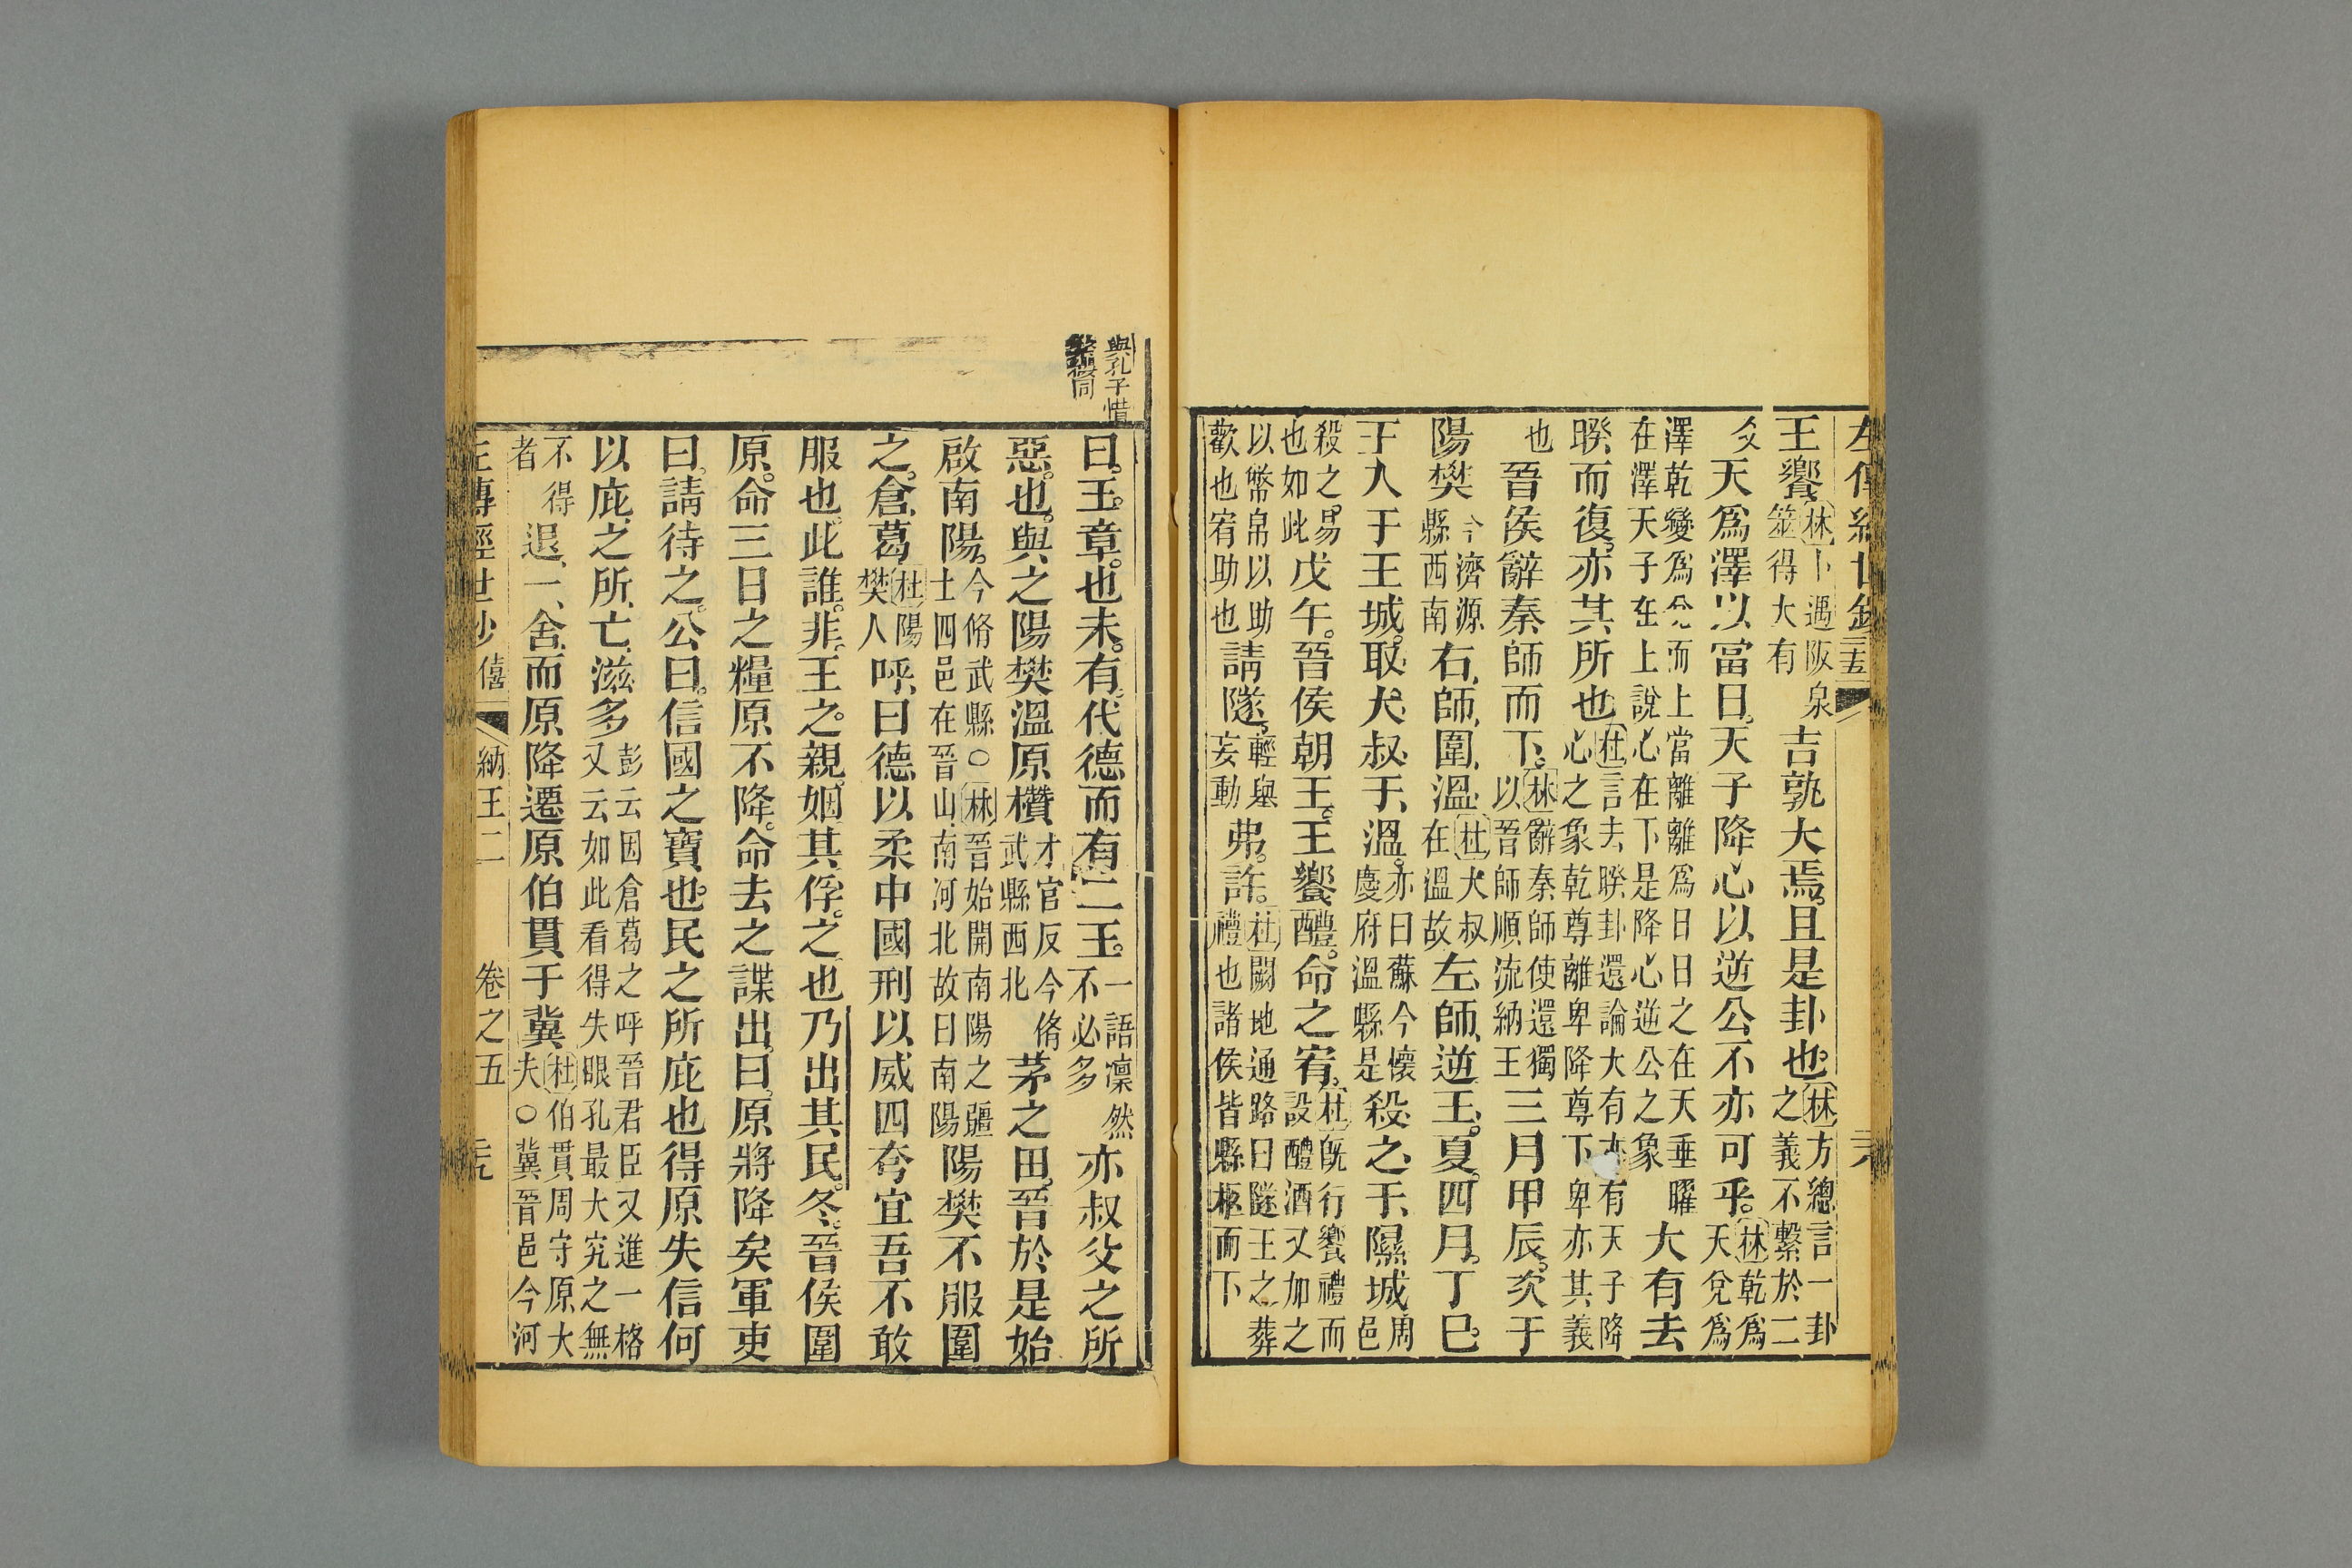 王饗林卜遇阪泉筮得大有吉孰大焉且是卦也林方總言一卦之義不繫於二
爻天爲澤以當日天子降心以逆公不亦可乎林乾爲天兌爲
澤乾變爲兌而上當離離爲日日之在天垂曜在澤天子在上說心在下是降心逆公之象大有去
睽而復亦其所也杜言去睽卦還論大有亦有天子降心之象乾尊離卑降尊下卑亦其義
也晉侯辭秦師而下林辭秦師使還獨以晉師順流納王三月甲辰次于
陽樊今濟源縣西南右師圍溫杜大叔在溫故左師逆王夏四月丁巳
王入于王城取大叔于溫亦曰蘇今懷慶府溫縣是殺之于隰城周邑
殺之易也如此戊午晉侯朝王王饗醴命之宥杜既行饗禮而設醴酒又加之
以幣帛以助歡也宥助也請隧輕舉妄動弗許杜闕地通路曰隧王之葬禮也諸侯皆縣柩而下
與孔子惜
繁纓同
曰王章也未有代德而有二王一語凜然不必多亦叔父之所
惡也與之陽樊溫原欑才官反今脩武縣西北茅之田晉於是始
啟南陽今脩武縣〇林晉始開南陽之疆土四邑在晉山南河北故曰南陽陽樊不服圍
之倉葛杜陽樊人呼曰德以柔中國刑以威四夸宜吾不敢
服也此誰非王之親姻其俘之也乃出其民冬晉侯圍
原命三日之糧原不降命去之諜出曰原將降矣軍吏
曰請待之公曰信國之寶也民之所庇也得原失信何
以庇之所亡滋多彭云因倉葛之呼晉君臣又進一格又云如此看得失眼孔最大究之無
不得不得者退一舍而原降遷原伯貫于冀杜伯貫周守原大夫〇冀晉邑今河
左傳經世鈔 僖 納王二 卷之五